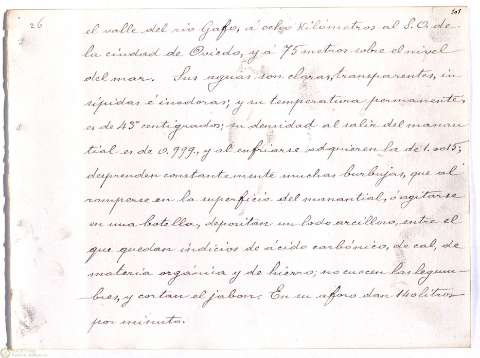 26
el valle del río Gafo, á ocho kilómetros al S.O. de
la ciudad de Oviedo, y á 75 metros sobre el nivel
del mar. Sus aguas son claras, transparentes, in-
sípidas é inodoras; y su temperatura permanente,
es de 43° centígrados; su densidad al salir del manan-
tial es de 0,999, y al enfriarse adquieren la de 1.0015;
desprenden constantemente muchas burbujas, que al
romperse en la superficie del manantial, ó agitarse
en una botella, depositan un lodo arcilloso, entre el
que quedan indicios de ácido carbónico, de cal, de
materia orgánica y de hierro; no cuecen las legum-
bres, y cortan el jabon. En su aforo dan 140 litros
por minuto.